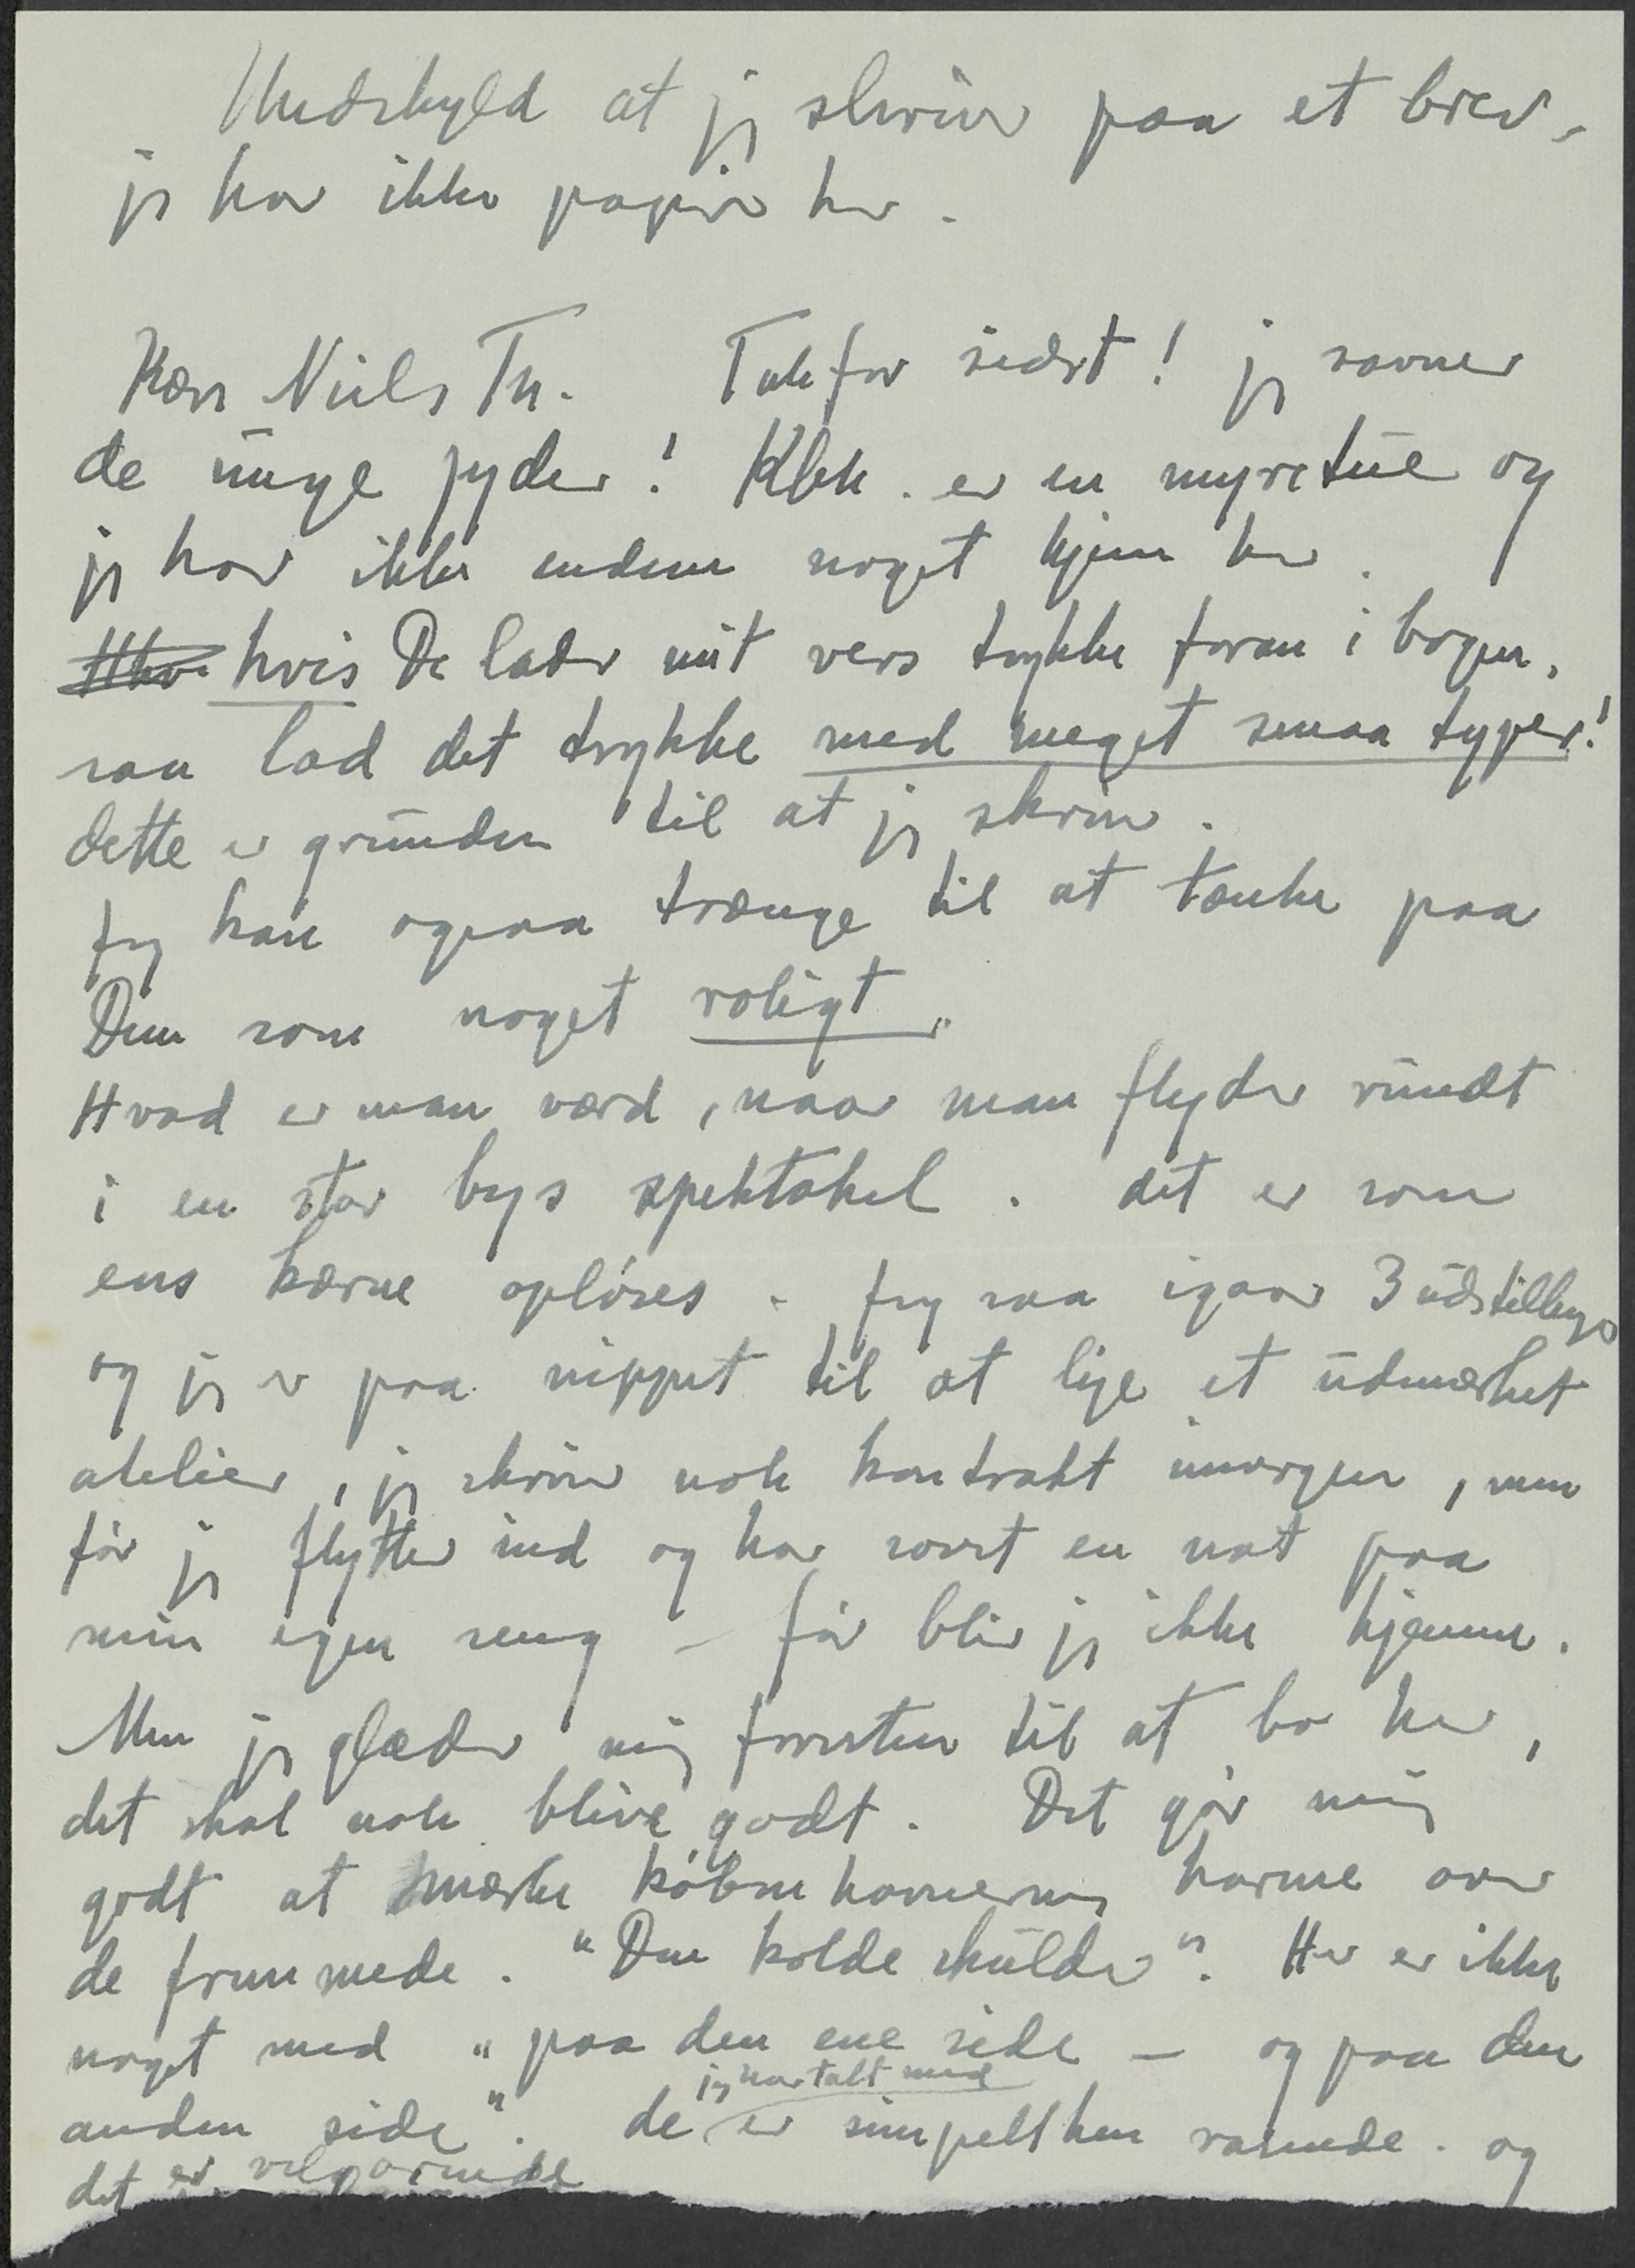 Undskyld at jeg skriver paa et brev,
jeg har ikke papir her.
Kære Niels Th. Tak for sidst! jeg savner
de unge jyder! Kbh. er en myretue og
jeg har ikke endnu noget hjem her.
hvis De lader mit vers trykke foran i bogen,
saa lad det trykke med meget smaa typer!
dette er grunden til at jeg skriver.
Jeg kan ogsaa trænge til at tænke paa
Dem som noget roligt.
Hvad er man værd, naar man flyder rundt
i en stor bys spektakel. det er som
ens kærne opløses. Jeg saa igaar 3 udstillinger
og jeg er paa nippet til at leje et udmærket
atelier, jeg skriver nok kontrakt imorgen, men
før jeg flytter ind og har sovet en nat paa
min egen seng – før blir jeg ikke hjemme.
Men jeg glæder mig forresten til at bo her,
det skal nok blive godt. Det gør mig
godt at mærke københavnernes harme over
de fremmede. "Den kolde skulder". Her er ikke
noget med "paa den ene side – og paa den
anden side". de jeg har talt med er simpelthen rasende. og
det er velgørende